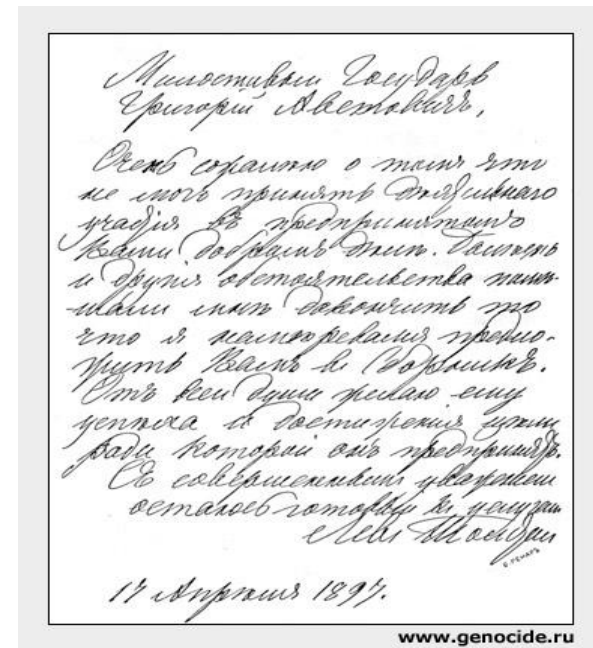 Милостивый Государь
Григорій Аветовичъ,
Очень сожалѣю о томъ что
не могъ принять дѣятельнаго
участія въ предпринятомъ
Вами добромъ дѣлѣ. Болѣзнь
и другія обстоятельства помѣ-
шали мнѣ докончить то
что я намѣревался предло-
жить Вамъ въ Сборникъ.
Отъ всей души желаю ему
успѣха и достиженія цѣли
ради которой онъ предпринятъ.
Съ совершеннымъ уваженіем
остаюсь готовый къ услугам
Левъ Толстой
17 Апрѣля 1897.
www.genocide.ru